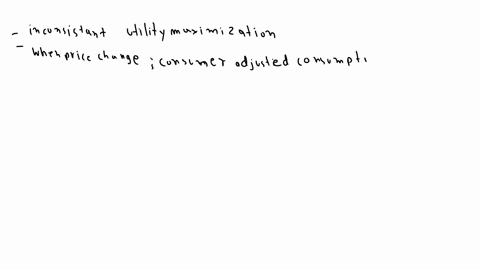 - inconsistant utility muximization
- when price change ; consumer adjusted comsumpti